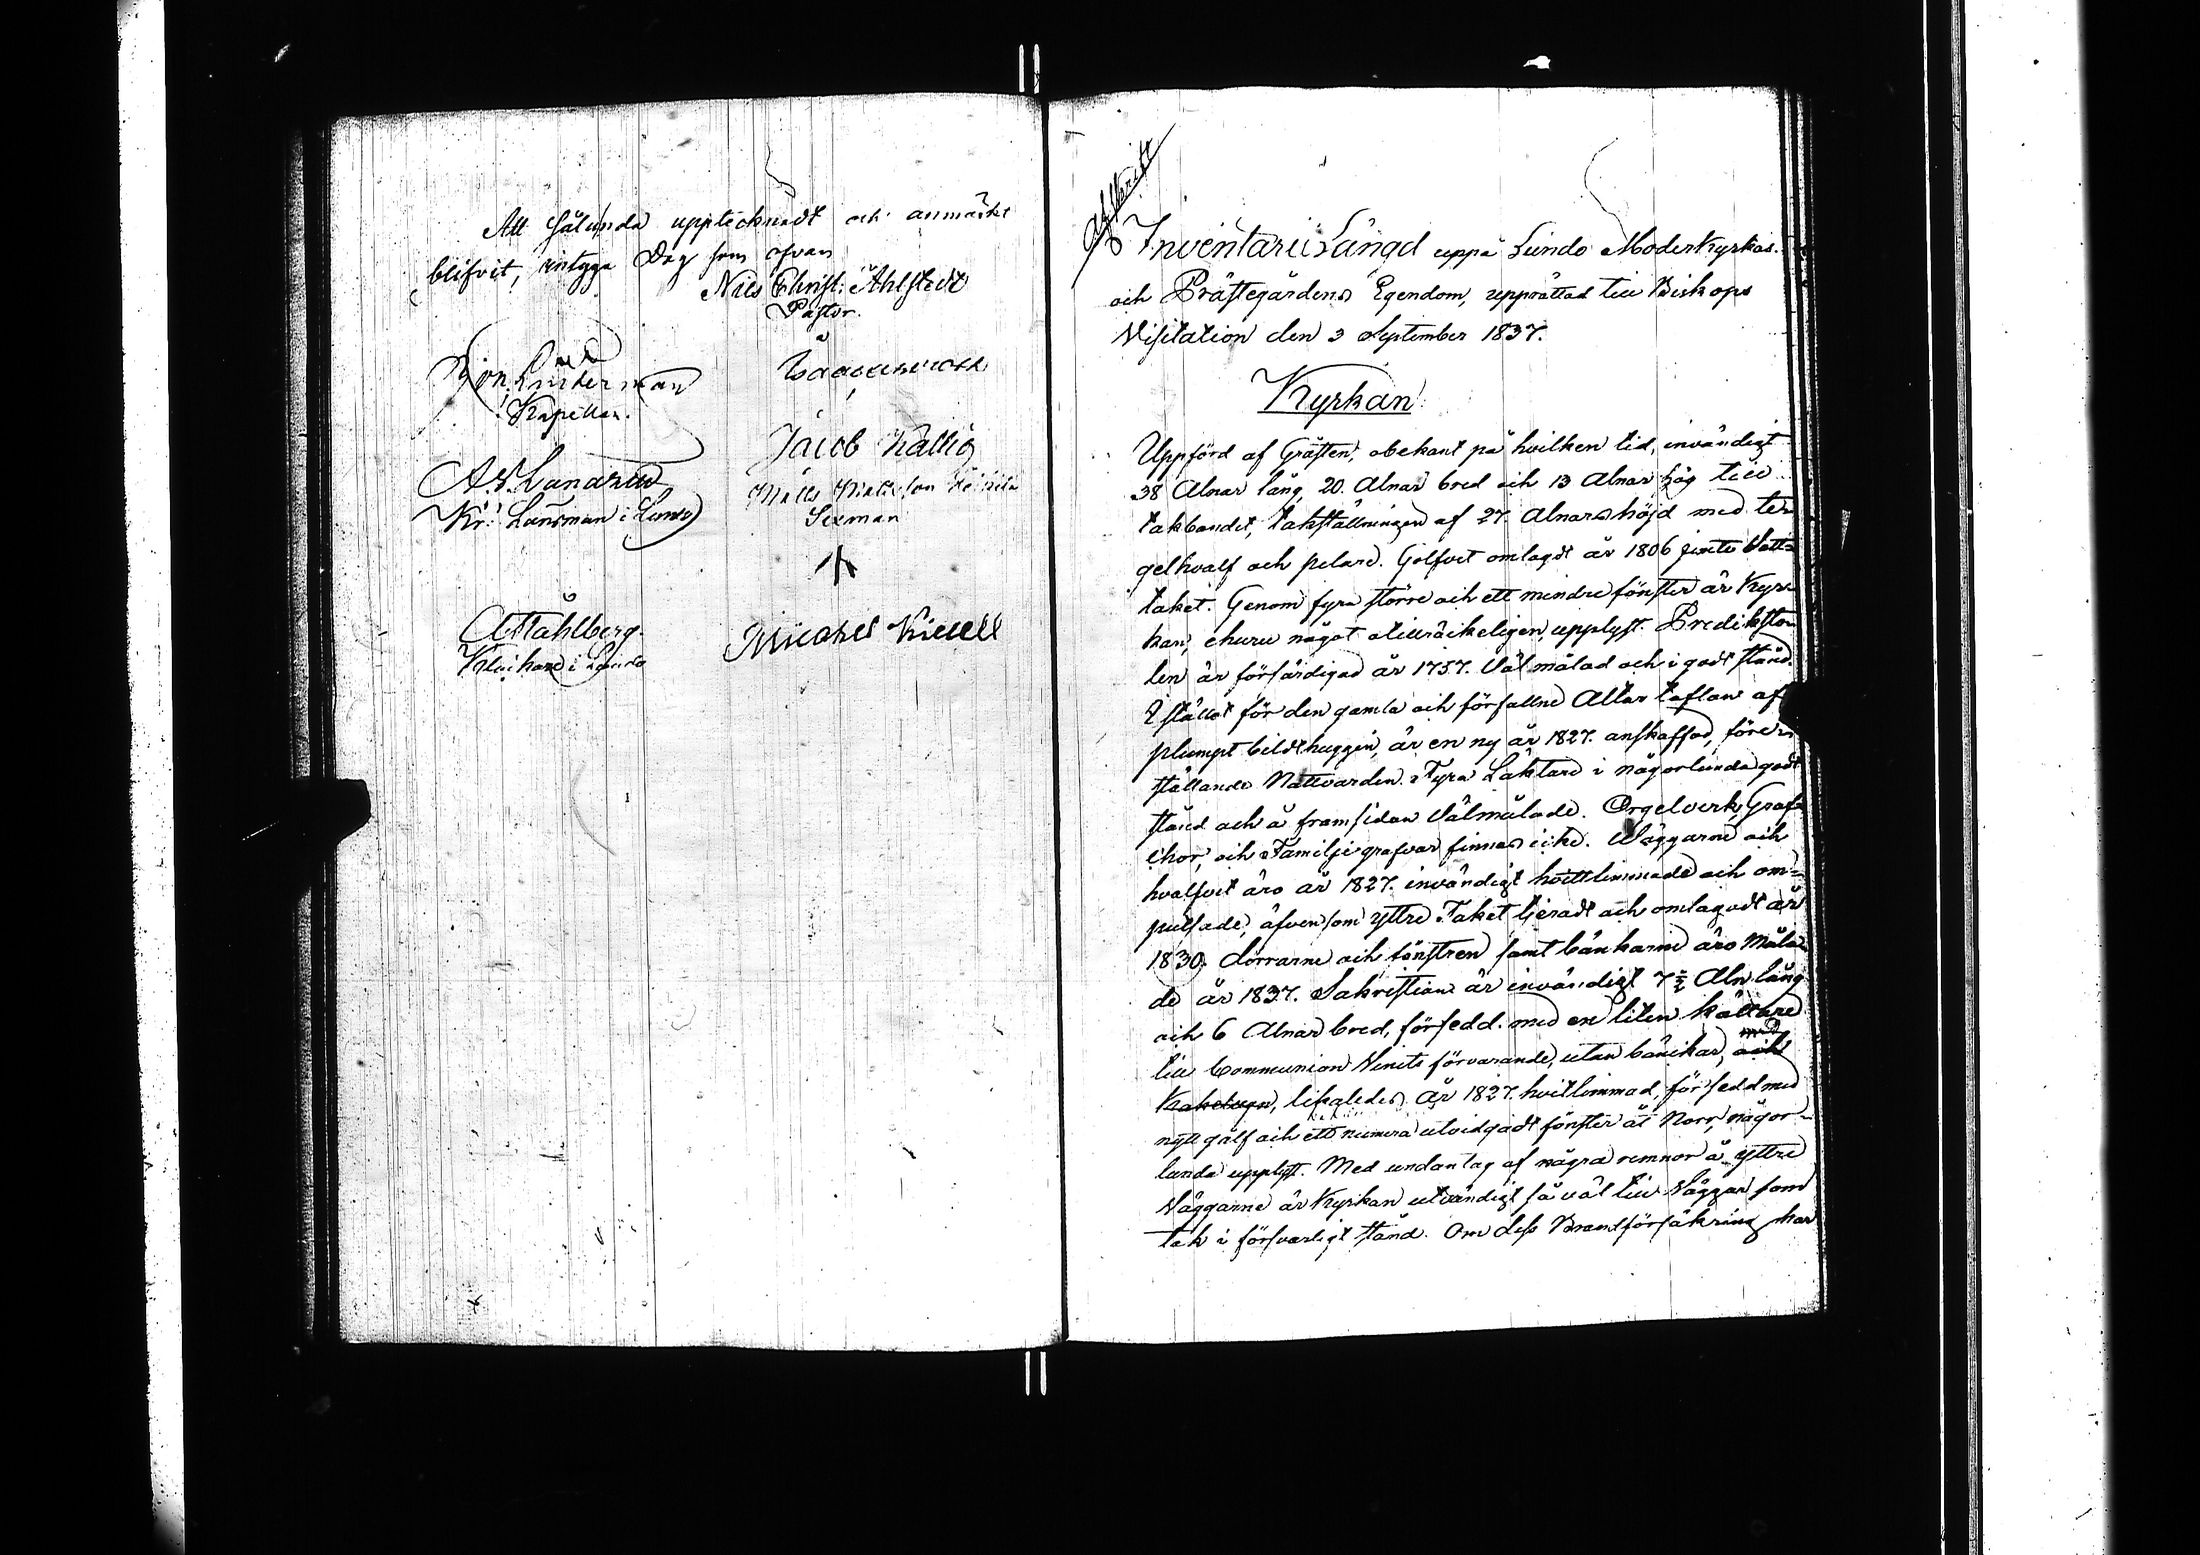 Att sålunda upptecknadt och anmärkt
blifvit, intyga Dag som ofvan
Nils Christ: Åhlstedt
Pastor.
Kapellan.
Jacob
A. F. Lundström
Kr: Länsman i Lundo
Matts Mattsson Heikilä
Sexman
A Ståhlberg
Klockare i Lundo
Michael
Afskrift
Inventarii Längd uppå Lundo Moderkyrkas
och Prästegårdens Egendom, upprättad till Biskops
Visitation den 3 September 1837.
Kyrkan
Uppförd af Gråsten, obekant på hvilken tid, invändigt
38 Alnar lång, 20. Alnar bred och 13 Alnar hög till
takbandet, takställningen af 27. Alnars höjd med te-
gelhvalf och pelare. Golfvet omlagdt år 1806 jemte Vatt-
taket. Genom fyra större och ett mindre fönster är Kyr-
kan, ehuru något otillräckeligen, upplyst. Prediksto-
len är förfärdigad år 1757. Väl målad och i godt stånd.
I stället för den gamla och förfallne Altar taflan af
plumpt bildthuggeri, är en ny år 1827. anskaffad, före-
ställande Nattvarden. Fyra Läktare i någorlunda godt
stånd och å framsidan Välmålade. Orgelverk, Graf-
chor, och Familjegrafvar finnas icke. Väggarne och
hvalfvet äro år 1827. invändigt hvittlimmade och om-
putsade, äfvensom yttre Taket tjäradt och omlagadt år
1830. dörrarne och fönstren samt bänkarne äro Måla-
de år 1837. Sakristian är invändigt 7 1/2 Aln lång
och 6 Alnar bred, försedd med en liten källare
till Communion Vinets förvarande, utan bänkar, och med
Kakelugn, likaledes År 1827. hvitlimmad, försedd med
nytt golf och ett numera utvidgadt fönster åt Norr, någor-
lunda upplyst. Med undantag af några remnor å yttre
Väggarne är Kyrkan utvändigt så väl till Väggar som
tak i försvarligt stånd. Om dess Brandförsäkring har